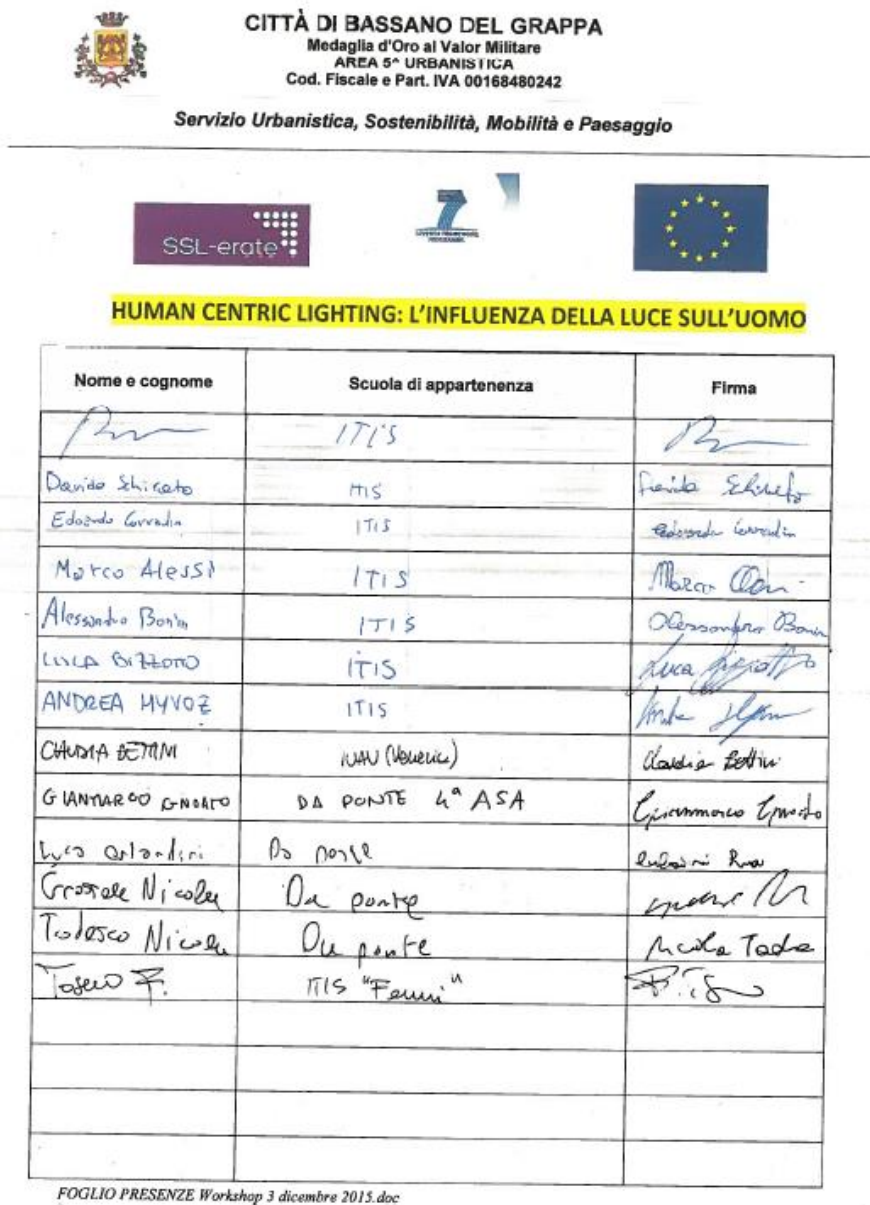 CITTÀ DI BASSANO DEL GRAPPA
Medaglia d'Oro al Valor Militare
AREA 5^ URBANISTICA
Cod. Fiscale e Part. IVA 00168480242
Servizio Urbanistica, Sostenibilità, Mobilità e Paesaggio
SSL-erate
7
SEVENTH FRAMEWORK PROGRAMME
HUMAN CENTRIC LIGHTING: L'INFLUENZA DELLA LUCE SULL'UOMO
Nome e cognome Scuola di appartenenza Firma
ITIS
Davide ITIS Davide
Edoardo Corradin ITIS Edoardo Corradin
Marco Alessi ITIS Marco
Alessandro Bonin ITIS Alessandro Bonin
LUCA BIZZOTTO ITIS Luca Bizzotto
ANDREA ITIS
CLAUDIA BETTINI IUAV (Venezia) Claudia Bettini
GIANMARCO DA PONTE 4ª ASA Gianmarco
Luca Orlandini Da Ponte
Nicola Da ponte
Todesco Nicola Da ponte Nicola
F. ITIS "Fermi"
FOGLIO PRESENZE Workshop 3 dicembre 2015.doc